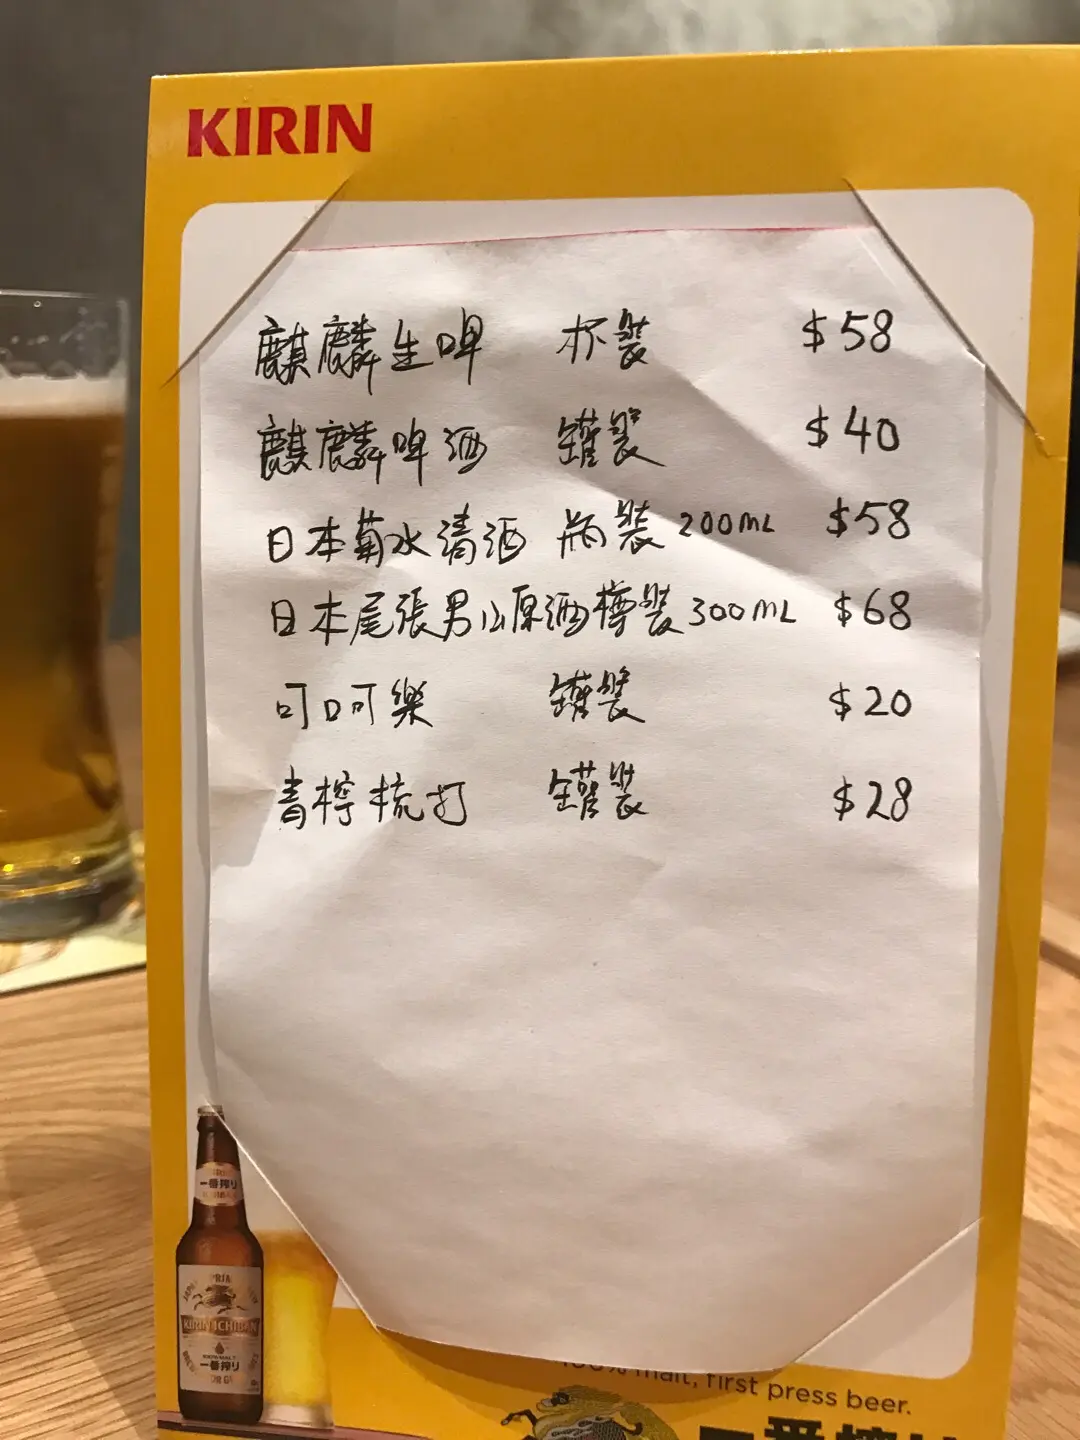 KIRIN
麒麟生啤 杯裝 $58
麒麟啤酒 罐裝 $40
日本菊水清酒 瓶裝 200mL $58
日本尾張男山原酒樽裝 300mL $68
可口可樂 罐裝 $20
青檸梳打 罐裝 $28
一番搾り
KIRIN ICHIBAN
一番搾り
100% malt, first press beer.
一番搾り